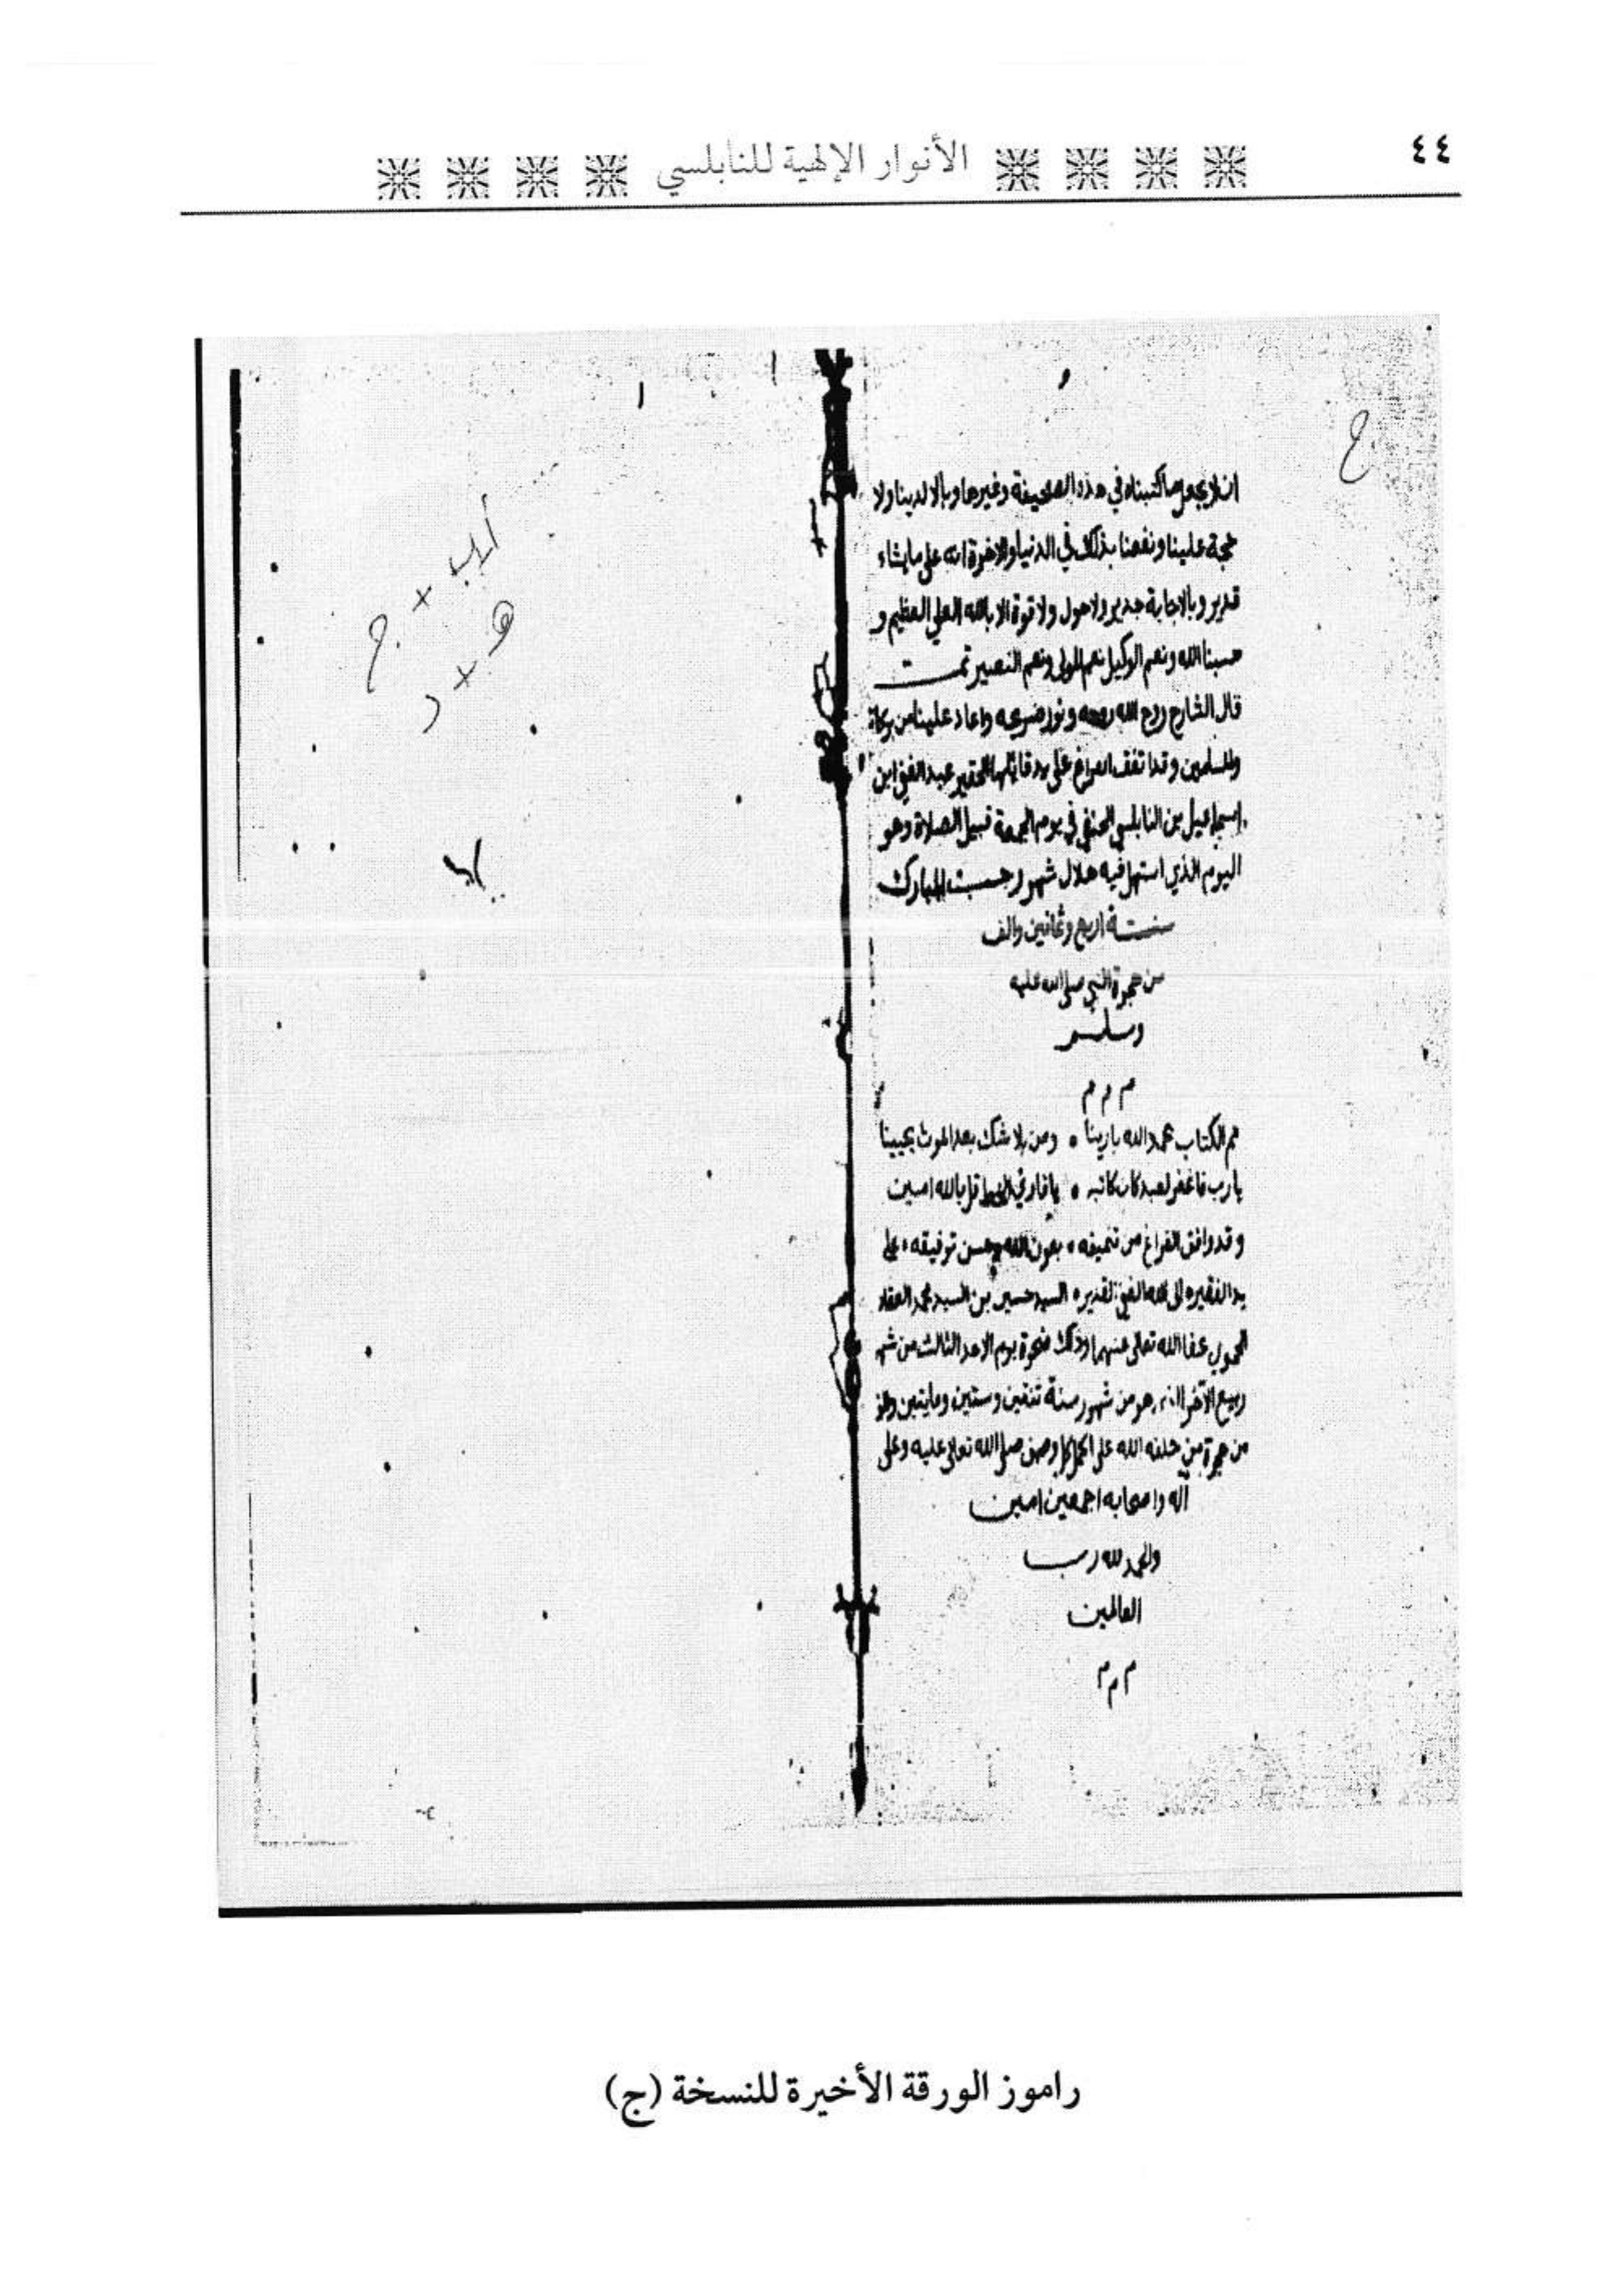 ٤٤
الأنوار الإلهية للنابلسي
ج
ان لا يجعل ما كتبناه في هذه الصحيفة وغيرها وبالا لدينا ولا
حجة علينا ونفعنا بذلك في الدنيا والاخرة انه على ما يشاء
قدير وبالاجابة جدير ولا حول ولا قوة الا بالله العلي العظيم و
حسبنا الله ونعم الوكيل نعم المولى ونعم النصير تمت
قال الشارح روح الله روحه ونور ضريحه واعاد علينا من بركاته
والمسلمين وقد اتفق الفراغ على يد قائلها الحقير عبد الغني ابن
اسماعيل بن النابلسي الحنفي في يوم الجمعة قبيل الصلاة وهو
اليوم الذي استهل فيه هلال شهر رجب المبارك
سنة اربع وثمانين والف
من هجرة النبي صلى الله عليه
وسلم
م م م
تم الكتاب بحمد الله بارينا ٥ ومن بلا شك بعد الموت يحيينا
يا رب فاغفر لعبد كان كاتبه ٥ يا قارئ الخط قل بالله امين
وقد وافق الفراغ من تنميقه ٥ بعون الله وحسن توفيقه ٥ على
يد الفقير الى الله الغني القدير ٥ السيد حسين بن السيد محمد العقاد
عفا الله تعالى عنهما وذلك ضحوة يوم الاحد الثالث من شهر
ربيع الآخر الذي هو من شهور سنة ثنتين وستين ومايتين والف
من هجرة من خلقه الله على اكمل وصف صلى الله تعالى عليه وعلى
اله واصحابه اجمعين امين
والحمد لله رب
العالمين
م م م
أ ب × ج
هـ × د
راموز الورقة الأخيرة للنسخة (ج)